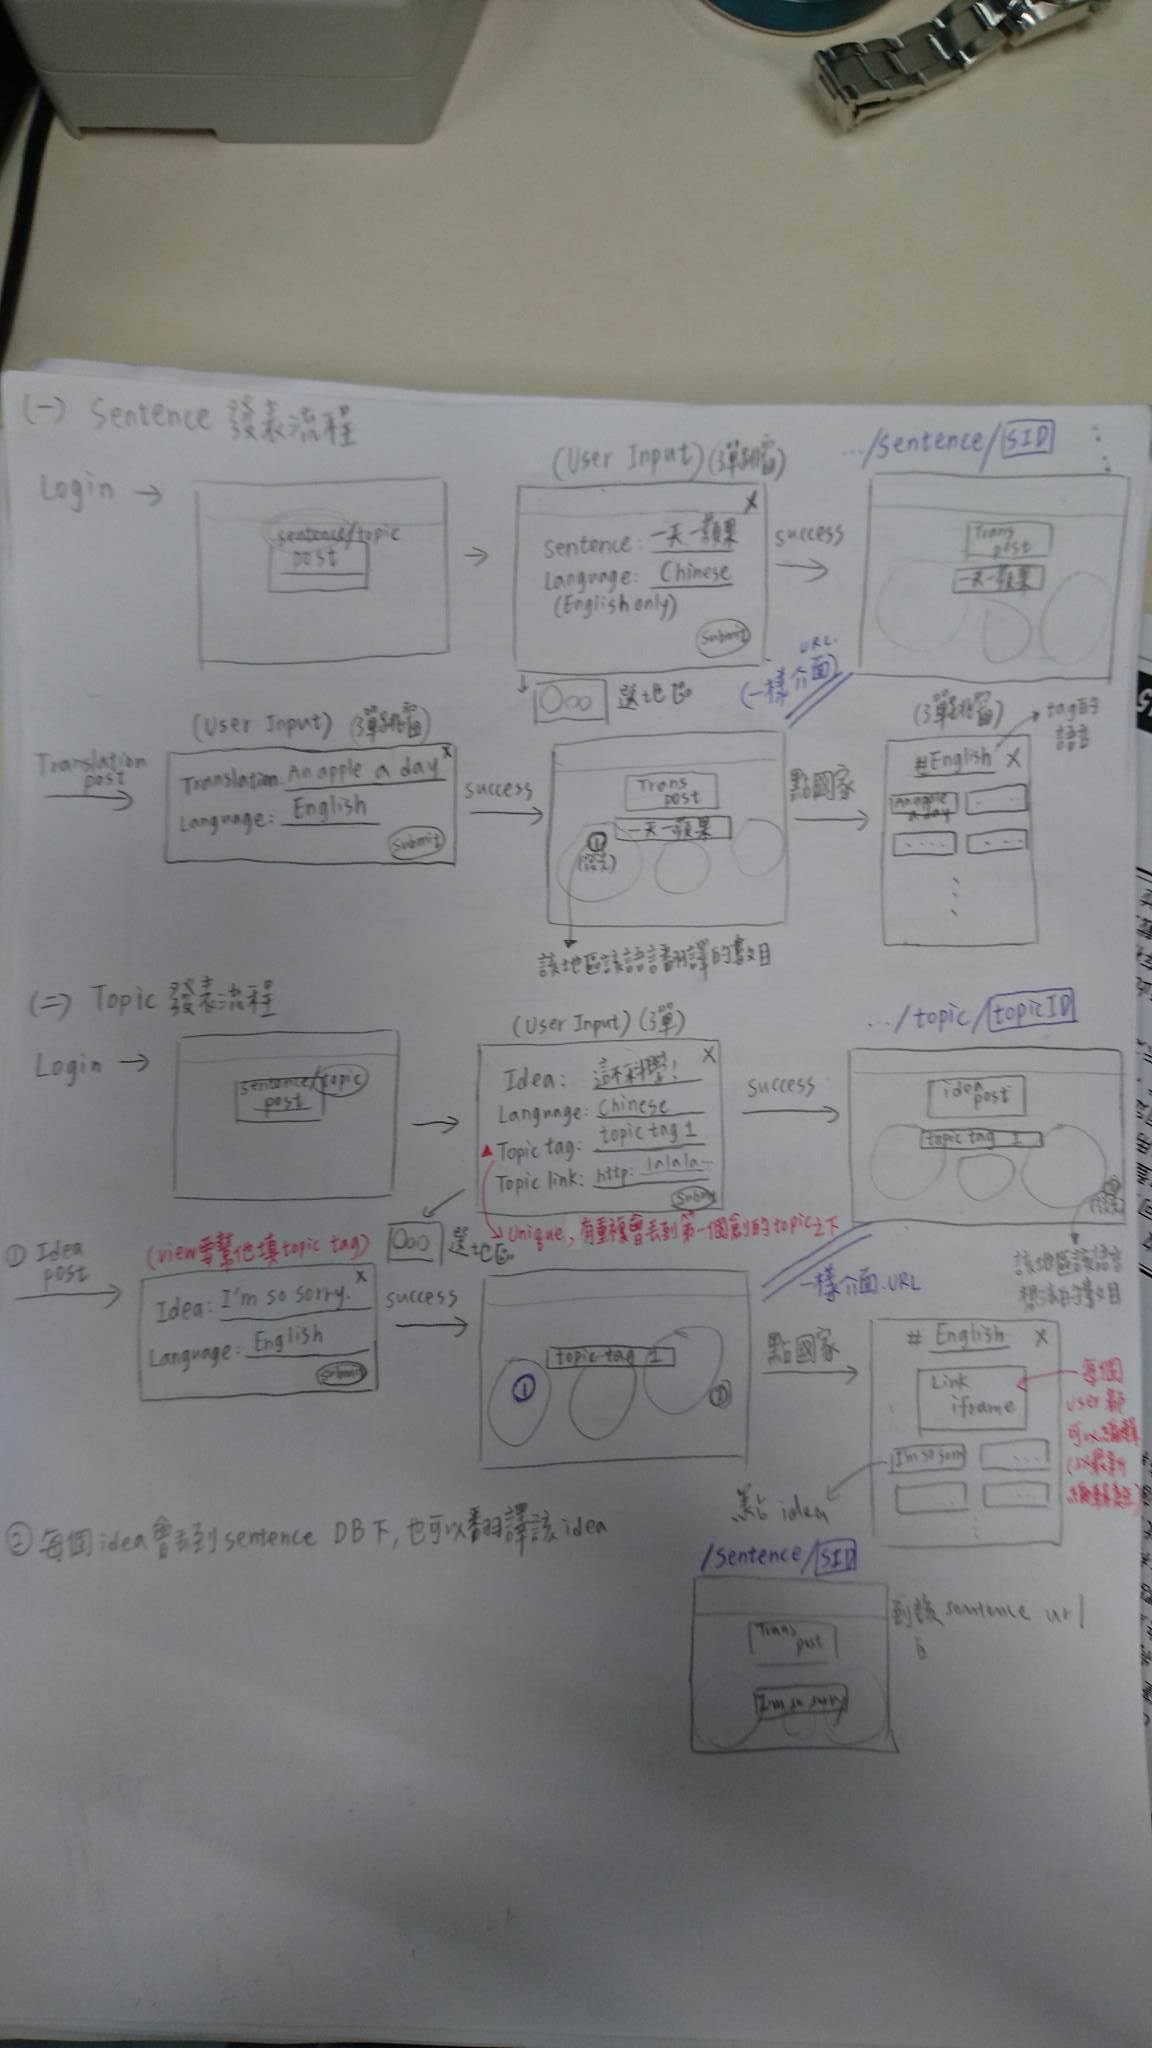 (一) Sentence 發表流程
Login →
sentence/topic
post
(User Input) (彈跳窗)
X
Sentence: 一天一蘋果
Language: Chinese
(English only)
Submit
success
.../sentence/SID
Trans
post
一天一蘋果
選地區
URL.
(一樣介面)
Translation
post
(User Input) (彈跳窗)
X
Translation: An apple a day
Language: English
Submit
success
Trans
post
一天一蘋果
①
該地區該語言翻譯的數目
點國家
(彈跳窗)
tag的
語言
#English X
An apple
a day
....
....
....
(二) Topic 發表流程
Login →
sentence/topic
post
(User Input) (彈)
X
Idea: 這不科學!
Language: Chinese
Topic tag: topic tag 1
Topic link: http: lalala...
Submit
success
.../topic/topicID
idea
post
topic tag 1
該地區該語言
想法的數目
選地區
Unique, 有重複會丟到第一個創的topic之下
① Idea
post
(view要幫他填topic tag)
X
Idea: I'm so sorry.
Language: English
Submit
success
topic tag 1
①
一樣介面.URL
點國家
# English X
Link
iframe
I'm so sorry
...
....
....
每個
user都
可以編輯
點idea
② 每個idea會丟到sentence DB下,也可以翻譯該idea
/sentence/SID
Trans
post
I'm so sorry
到該sentence url